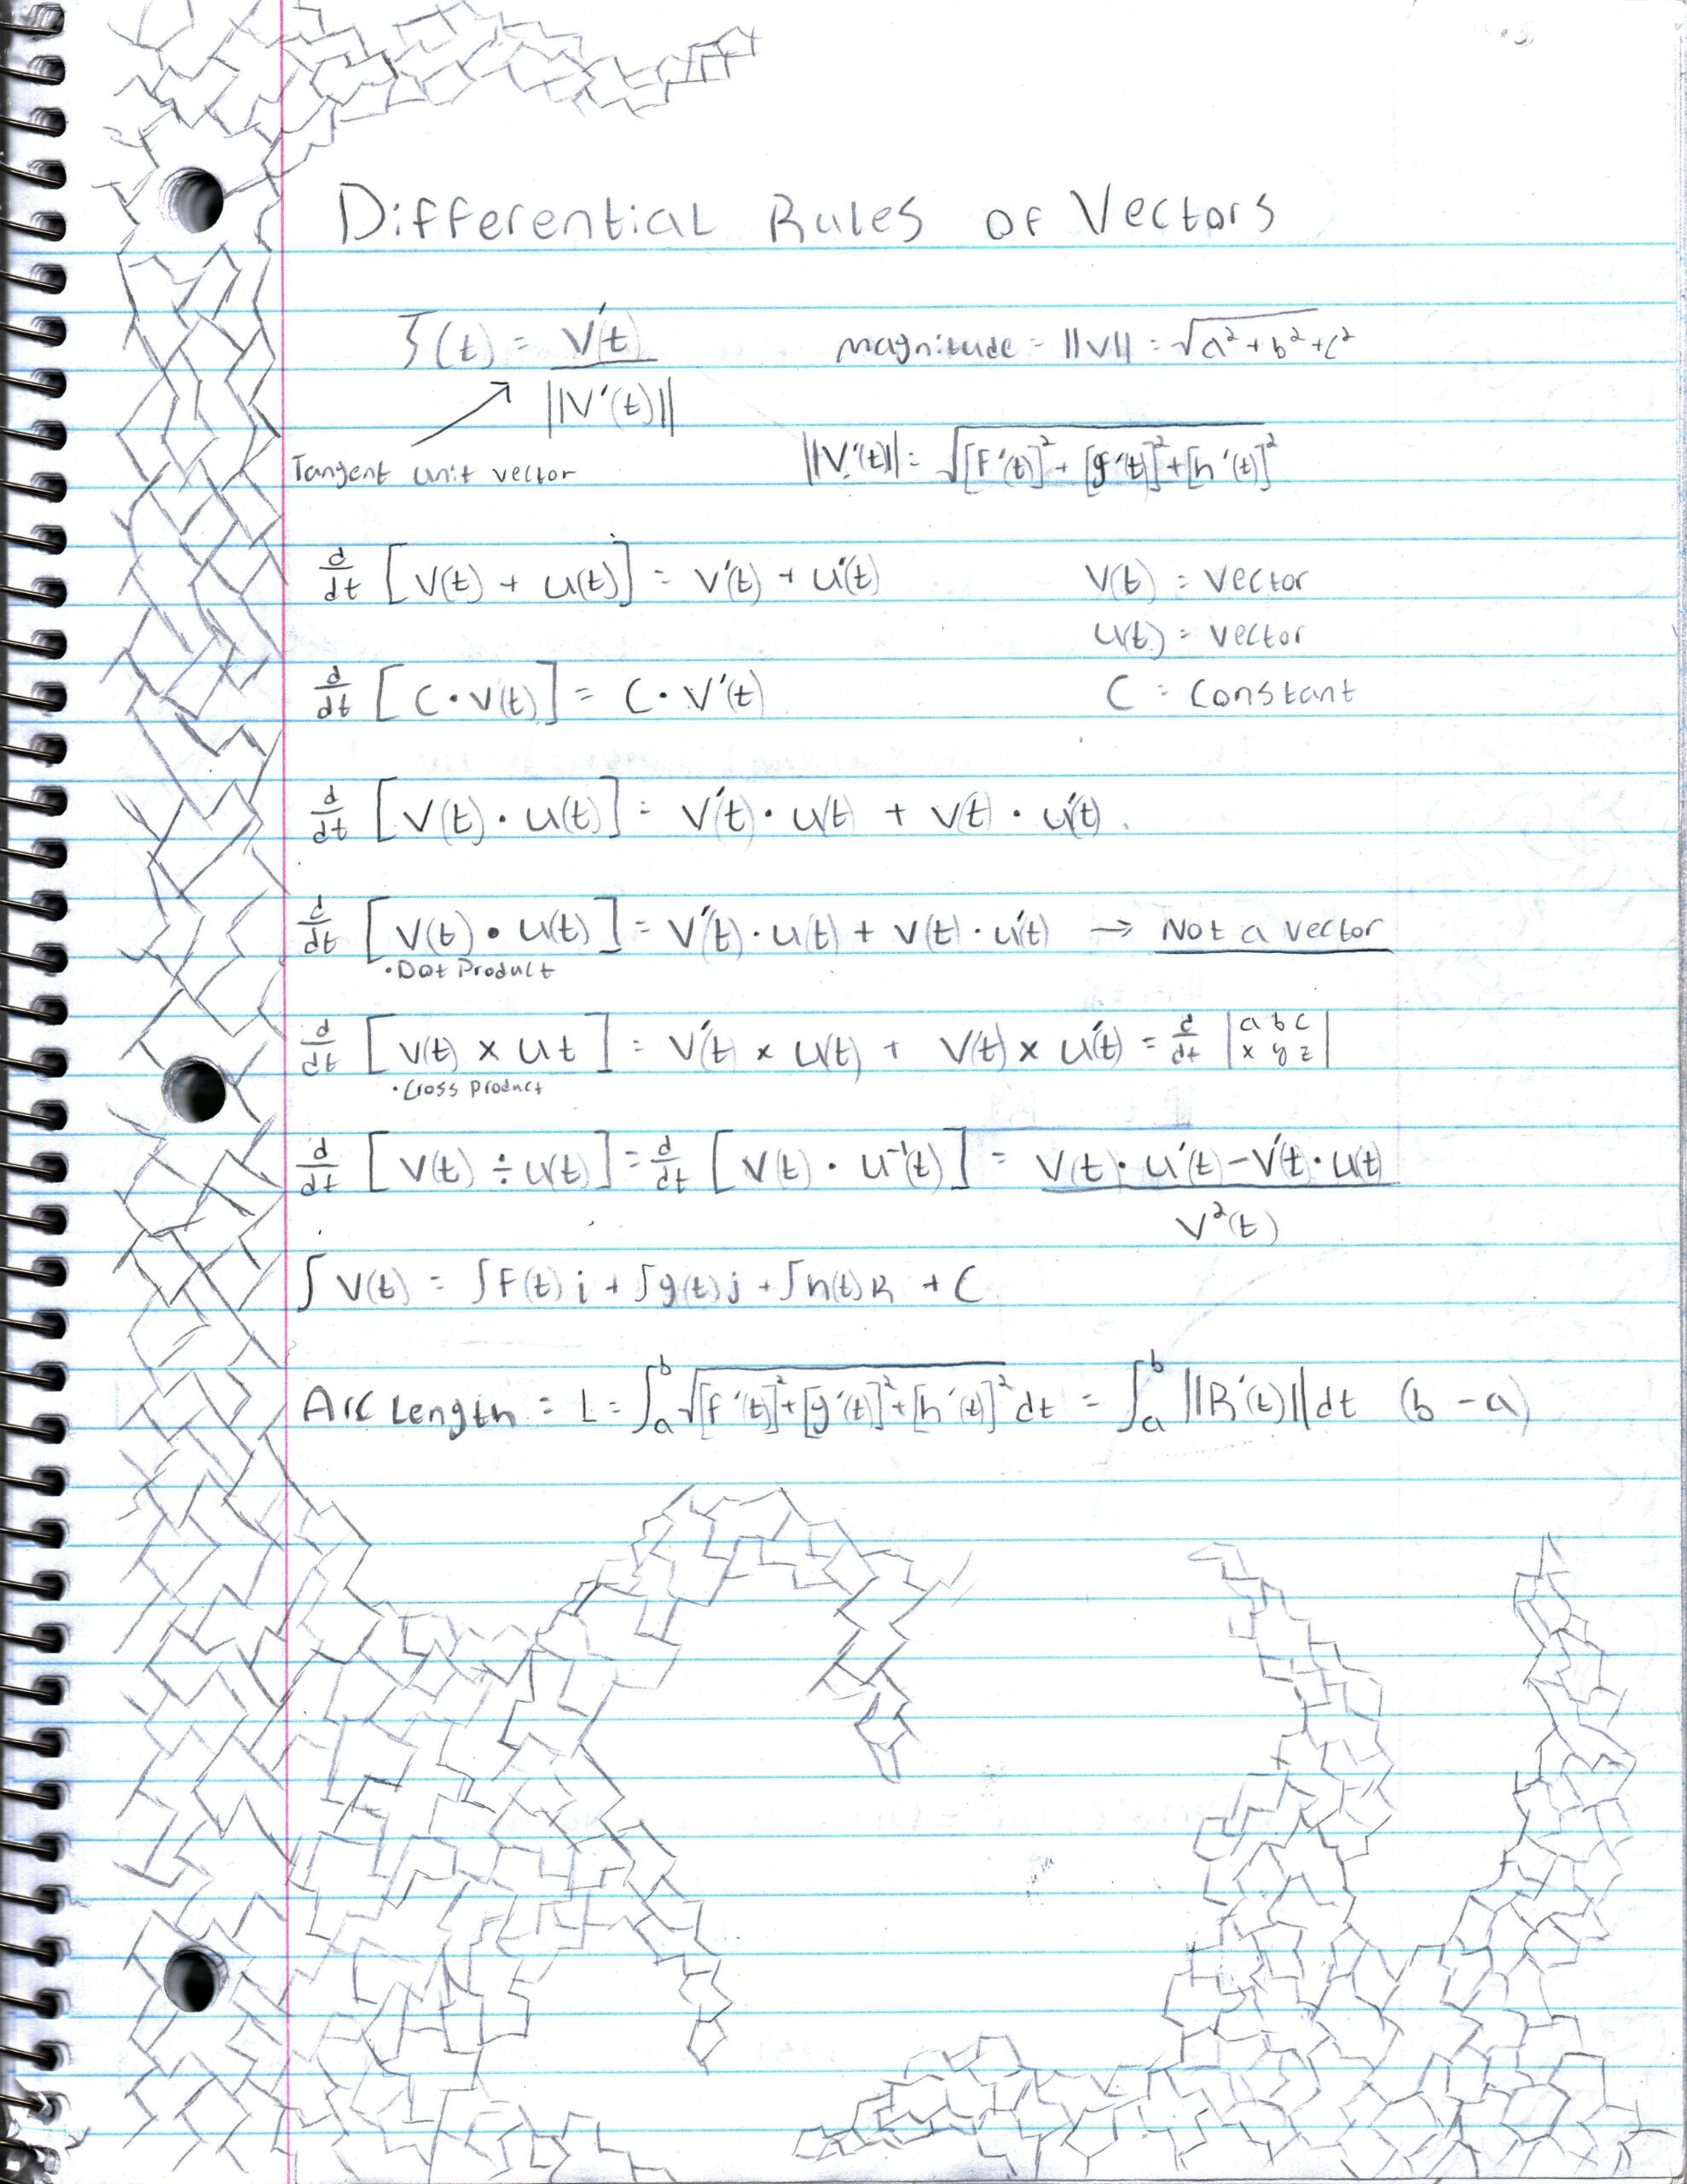 Differential Rules of Vectors
T(t) = V'(t) / ||V'(t)||
magnitude = ||V|| = √a² + b² + c²
Tangent unit vector
||V'(t)|| = √[f'(t)]² + [g'(t)]² + [h'(t)]²
d/dt [V(t) + U(t)] = V'(t) + U'(t)
V(t) = Vector
U(t) = Vector
d/dt [C · V(t)] = C · V'(t)
C = Constant
d/dt [V(t) · U(t)] = V'(t) · U(t) + V(t) · U'(t)
d/dt [V(t) • U(t)] = V'(t) · U(t) + V(t) · U'(t) → Not a vector
• Dot Product
d/dt [V(t) × U t] = V'(t) × U(t) + V(t) × U'(t) = d/dt |a b c
x y z|
• Cross Product
d/dt [V(t) ÷ U(t)] = d/dt [V(t) · U⁻¹(t)] = V(t) · U'(t) - V'(t) · U(t) / V²(t)
∫ V(t) = ∫f(t) i + ∫g(t) j + ∫h(t) k + C
Arc Length = L = ∫ₐᵇ √[f'(t)]² + [g'(t)]² + [h'(t)]² dt = ∫ₐᵇ ||R'(t)|| dt (b - a)